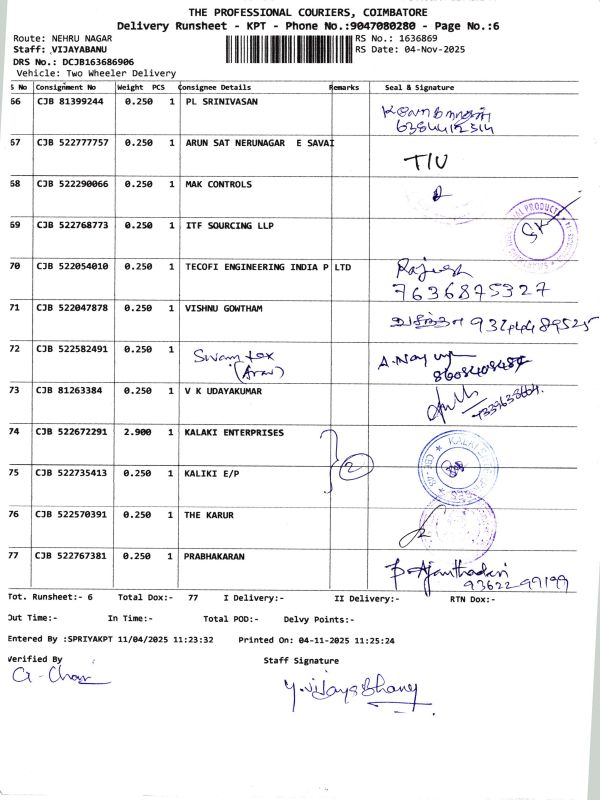 THE PROFESSIONAL COURIERS, COIMBATORE
Delivery Runsheet - KPT - Phone No.:9047080280 - Page No.:6
Route: NEHRU NAGAR
RS No.: 1636869
Staff: VIJAYABANU
RS Date: 04-Nov-2025
DRS No.: DCJB163686906
Vehicle: Two Wheeler Delivery
S No Consignment No Weight PCS Consignee Details Remarks Seal & Signature
66 CJB 81399244 0.250 1 PL SRINIVASAN
67 CJB 522777757 0.250 1 ARUN SAT NERUNAGAR E SAVAI TIU
68 CJB 522290066 0.250 1 MAK CONTROLS
69 CJB 522768773 0.250 1 ITF SOURCING LLP
70 CJB 522054010 0.250 1 TECOFI ENGINEERING INDIA P LTD Rajesh
7636875327
71 CJB 522047878 0.250 1 VISHNU GOWTHAM
72 CJB 522582491 0.250 1 Swam tex
(Arav)
73 CJB 81263384 0.250 1 V K UDAYAKUMAR
74 CJB 522672291 2.900 1 KALAKI ENTERPRISES
2
75 CJB 522735413 0.250 1 KALIKI E/P
76 CJB 522570391 0.250 1 THE KARUR
77 CJB 522767381 0.250 1 PRABHAKARAN
93622 99199
Tot. Runsheet:- 6 Total Dox:- 77 I Delivery:- II Delivery:- RTN Dox:-
Out Time:- In Time:- Total POD:- Delvy Points:-
Entered By :SPRIYAKPT 11/04/2025 11:23:32 Printed On: 04-11-2025 11:25:24
Verified By Staff Signature
Y.VijayaBhany